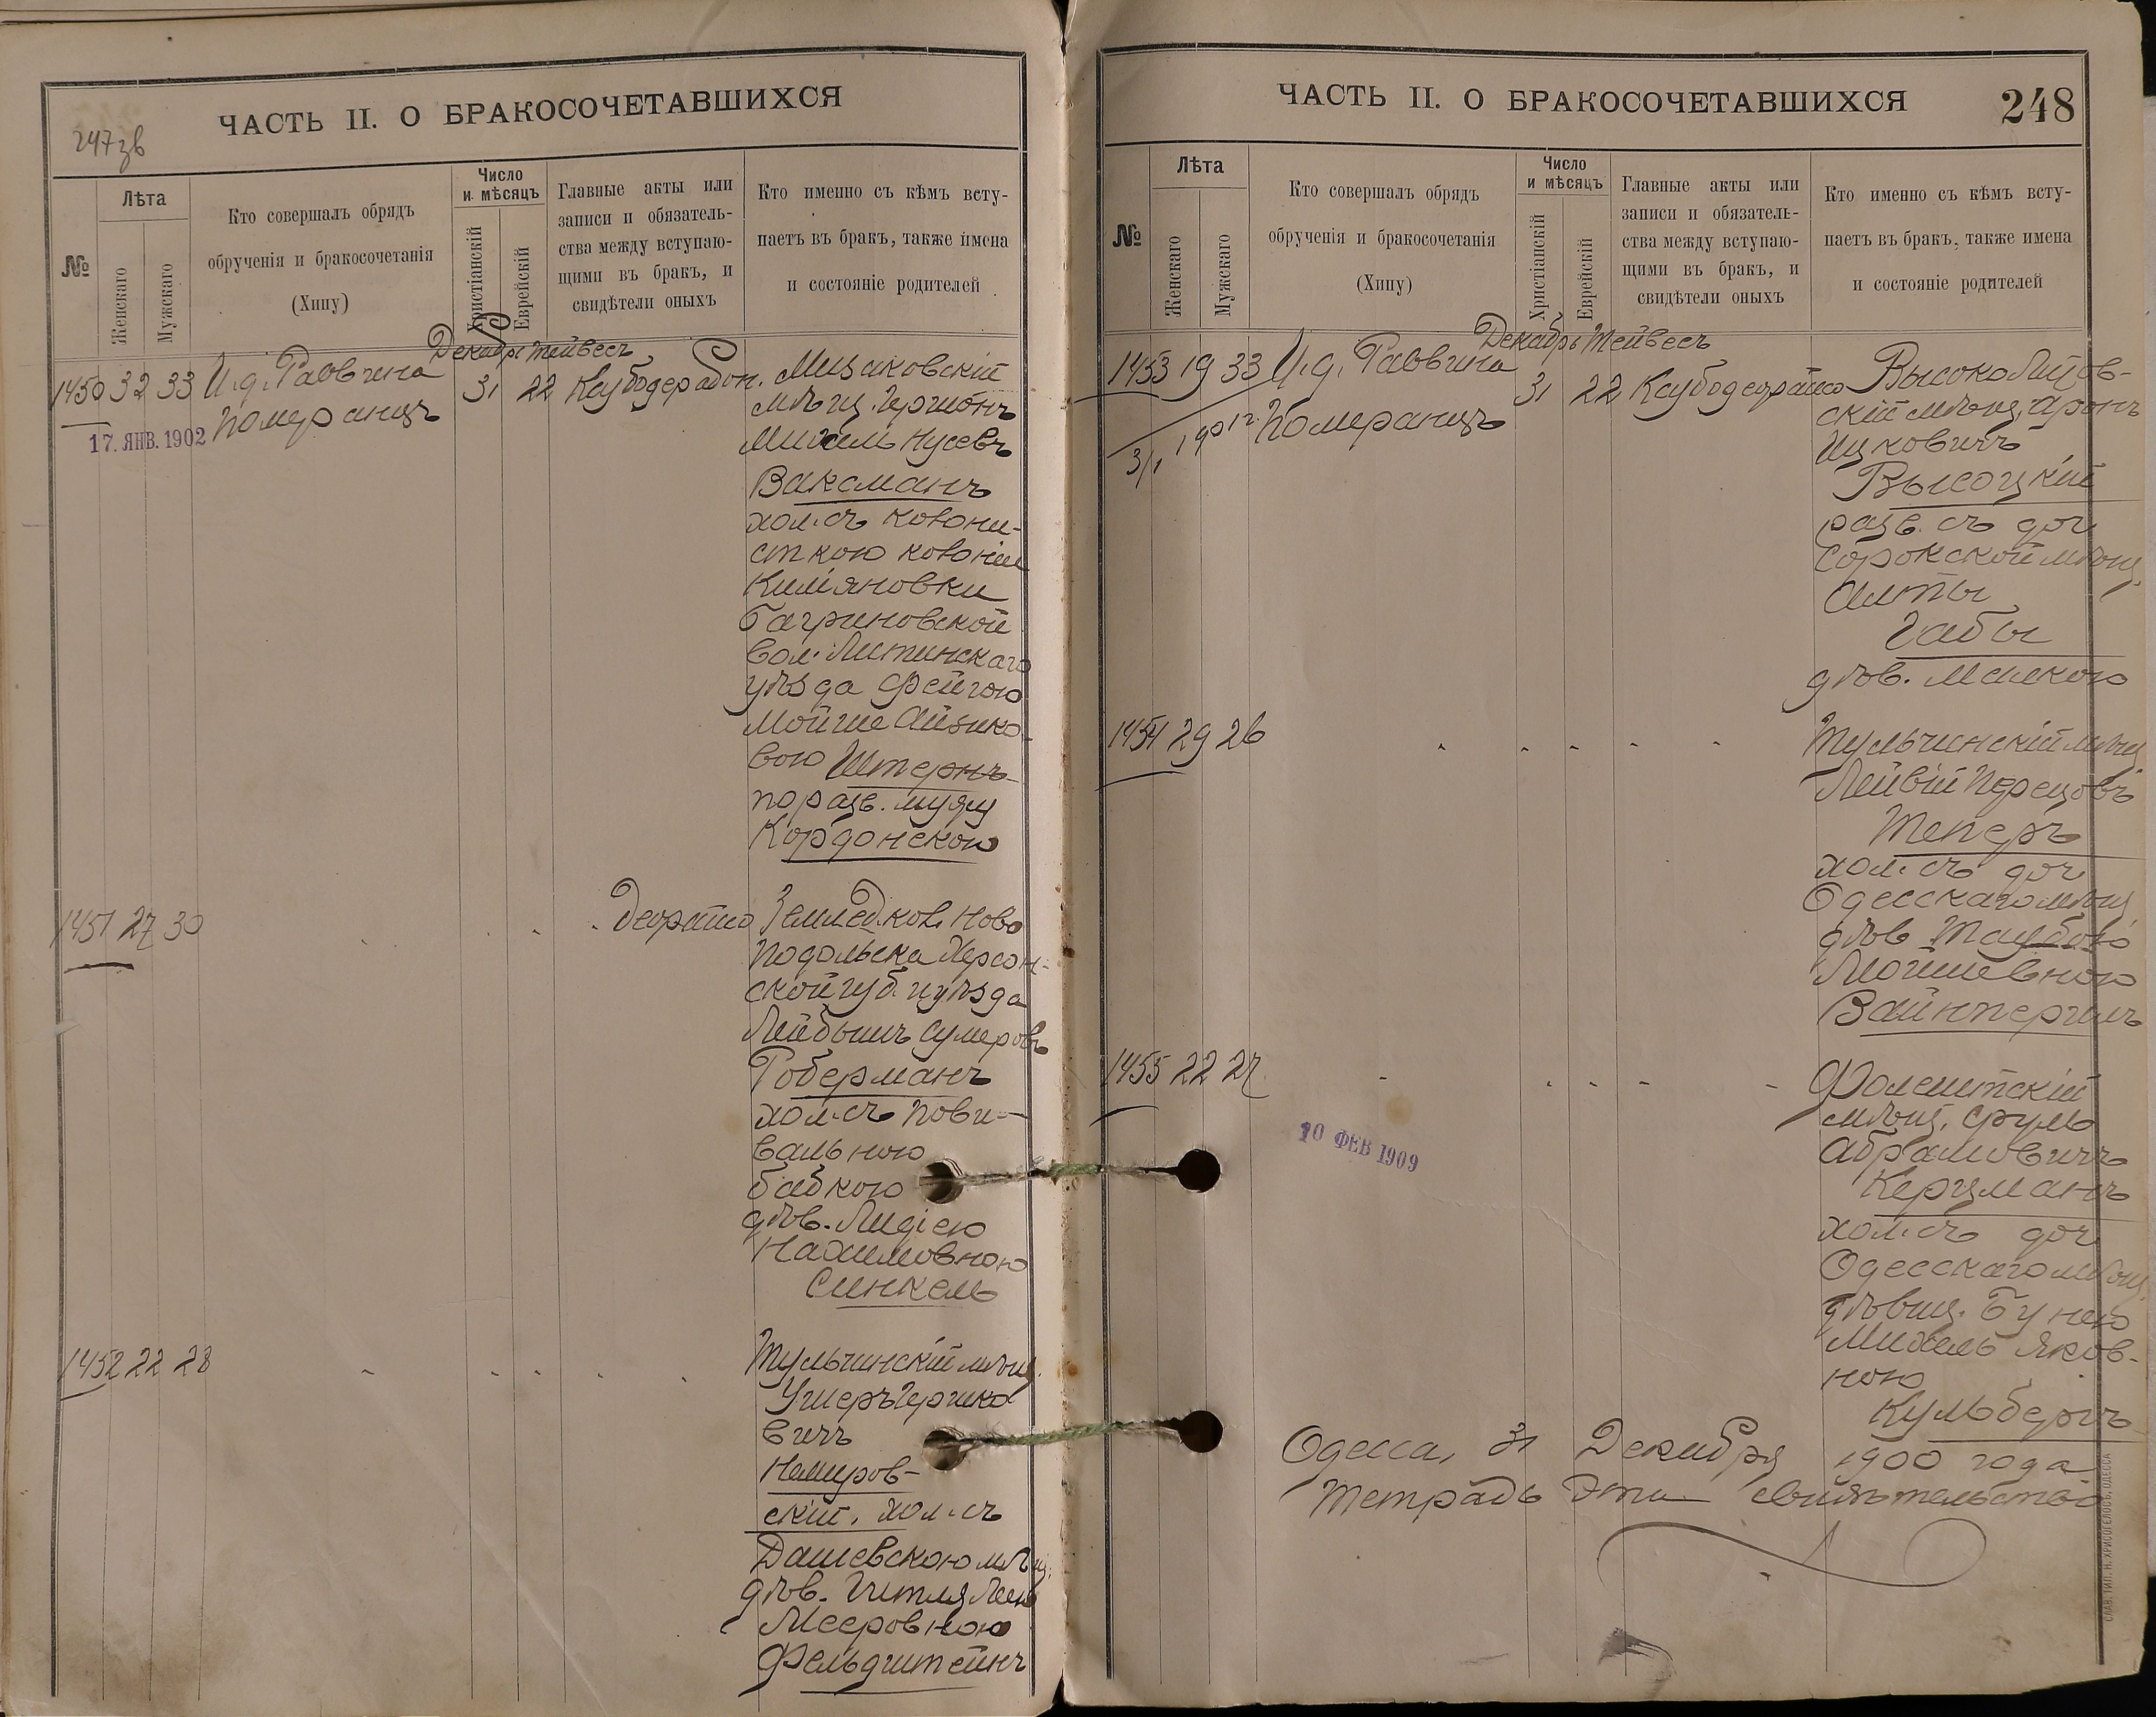 ЧАСТЬ II. О БРАКОСОЧЕТАВШИХСЯ
247
№
Лѣта
Женскаго
Мужскаго
Кто совершалъ обрядъ
обрученія и бракосочетанія
(Хипу)
Число
и мѣсяцъ
Христіанскій
Еврейскій
Главные акты или
записи и обязатель-
ства между вступаю-
щими въ бракъ, и
свидѣтели оныхъ
Кто именно съ кѣмъ всту-
паетъ въ бракъ, также имена
и состояніе родителей
Декабрь Тейвесъ
1450 32 33 И.д. Раввина 31 22
Померанцъ
17. ЯНВ. 1902
мѣщ. Гершонъ
Михель Нусевъ
Ваксманъ
хол. съ колони-
сткою колоніи
Багриновской
вол. Литинскаго
уѣзда Фейгою
Мойше Айзико-
вою Штернъ
по разв. мужу
Кордонскою
1451 27 30
Земл. кол. Ново
Подольска Херсон-
ской губ. и уѣзда
Лейбышъ Сумеровъ
Роберманъ
хол. съ пови-
вальною
бабкою
дѣв. Лидіею
Нахимовною
Синкель
1452 22 28
Тульчинскій мѣщ.
Ушеръ Гершко
вичъ
Немиров-
скій, хол. съ
Дашевскою мѣщ.
дѣв. Гитля Лея
Мееровною
Фельдштейнъ
ЧАСТЬ II. О БРАКОСОЧЕТАВШИХСЯ
248
№
Лѣта
Женскаго
Мужскаго
Кто совершалъ обрядъ
обрученія и бракосочетанія
(Хипу)
Число
и мѣсяцъ
Христіанскій
Еврейскій
Главные акты или
записи и обязатель-
ства между вступаю-
щими въ бракъ, и
свидѣтели оныхъ
Кто именно съ кѣмъ всту-
паетъ въ бракъ, также имена
и состояніе родителей
Декабрь Тейвесъ
1453 19 33 И.д. Раввина 31 22
Померанцъ
Высоко Литов-
скій мѣщ. Аронъ
Ицковичъ
Высоцкій
разв. съ доч
Сорокской мѣщ.
Габы
дѣв. Малкою
1454 29 26
Тульчинскій мѣщ
Лейвій Перецовъ
Теперъ
хол. съ доч
Одесскаго мѣщ.
дѣв Таубою
Мойшевною
Вайнпергилъ
1455 22 27
10 ФЕВ 1909
Фолештскій
мѣщ. Сруль
Абрамовичъ
Керцманъ
хол. съ доч
Одесскаго мѣщ.
дѣвиц. Бунею
Михель Яков-
ною
Кульбергъ
Одесса, 31 Декабря 1900 года
Тетрадь эта
СЛАВ. ТИП. Н. ХРИСОГЕЛОСЪ, ОДЕССА